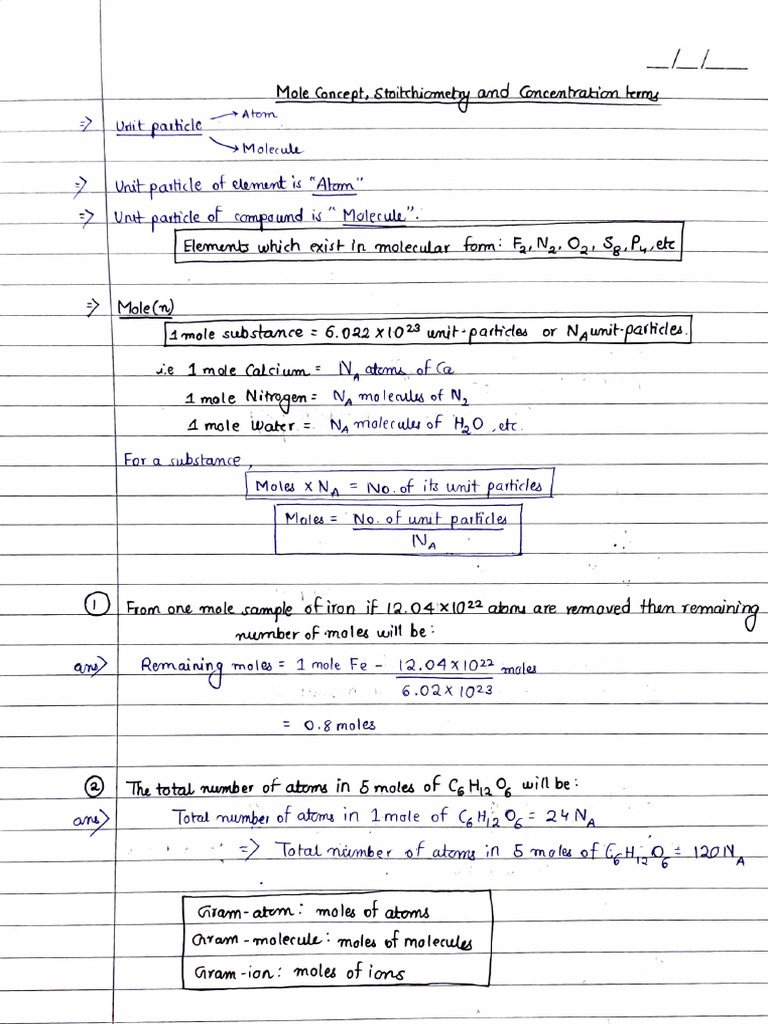 __/__/__
Mole Concept, Stoitchiometry and Concentration terms
⇒ Unit particle → Atom
→ Molecule
⇒ Unit particle of element is "Atom"
⇒ Unit particle of compound is "Molecule".
Elements which exist in molecular form: F₂, N₂, O₂, S₈, P₄, etc
⇒ Mole(n)
1 mole substance = 6.022 × 10²³ unit-particles or N_A unit-particles.
i.e 1 mole Calcium = N_A atoms of Ca
1 mole Nitrogen = N_A molecules of N₂
1 mole Water = N_A molecules of H₂O, etc.
For a substance,
Moles × N_A = No. of its unit particles
Moles = No. of unit particles
N_A
① From one mole sample of iron if 12.04×10²² atoms are removed then remaining
number of moles will be:
ans) Remaining moles = 1 mole Fe - 12.04×10²² moles
6.02×10²³
= 0.8 moles
② The total number of atoms in 5 moles of C₆H₁₂O₆ will be:
ans) Total number of atoms in 1 mole of C₆H₁₂O₆ = 24 N_A
⇒ Total number of atoms in 5 moles of C₆H₁₂O₆ = 120 N_A
Gram-atom: moles of atoms
Gram-molecule: moles of molecules
Gram-ion: moles of ions